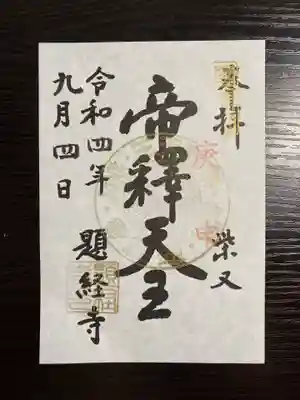 奉拝 柴又
庚申
帝釋天王
令和四年 題経寺
九月四日